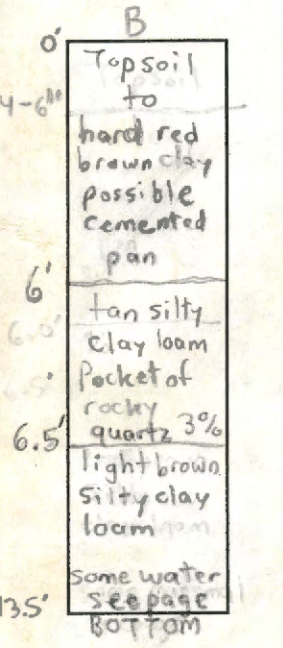 B
0'
Topsoil
to
4-6"
hard red
brown clay
possible
cemented
pan
6'
tan silty
clay loam
Pocket of
rocky
quartz 3%
6.5'
light brown
silty clay
loam
some water
seepage
13.5'
BOTTOM